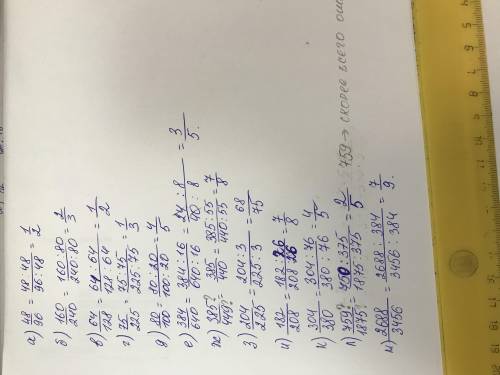 а) 48/96 = 48:48/96:48 = 1/2
б) 160/240 = 160:80/240:80 = 2/3
в) 64/128 = 64:64/128:64 = 1/2
г) 75/225 = 75:75/225:75 = 1/3
д) 80/100 = 80:20/100:20 = 4/5
е) 384/640 = 384:16/640:16 = 24:8/40:8 = 3/5.
ж) 385?/449? = 385/440 = 385:55/440:55 = 7/8
з) 204/225 = 204:3/225:3 = 68/75
и) 182/208 = 182:26/208:26 = 7/8
к) 304/380 = 304:76/380:76 = 4/5
л) 759?/1875 = 750:375/1875:375 = 2/5 759 → скорее всего
м) 2688/3456 = 2688:384/3456:384 = 7/9.